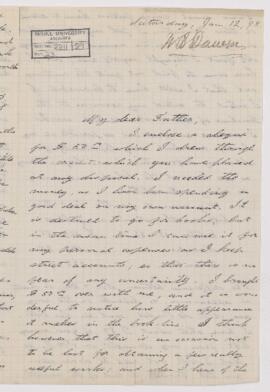 Saturday, Jan 12, 98.
McGILL UNIVERSITY
ARCHIVES
W B Dawson
My dear Father,
I enclose a cheque
for £50 which I drew through
the credit which you have placed
at my disposal. I needed the
money, as I have been spending a
good deal on my own account. It
is destined to go for books; but
in the mean time I can use it for
my personal expenses as I keep
strict accounts, so that there is no
fear of any uncertainty. I brought
£50 over with me, and it is won-
derful to notice how little appearance
it makes in the book line. I think
however that this is an occasion not
to be lost for obtaining a few really
useful works; and when I hear of the